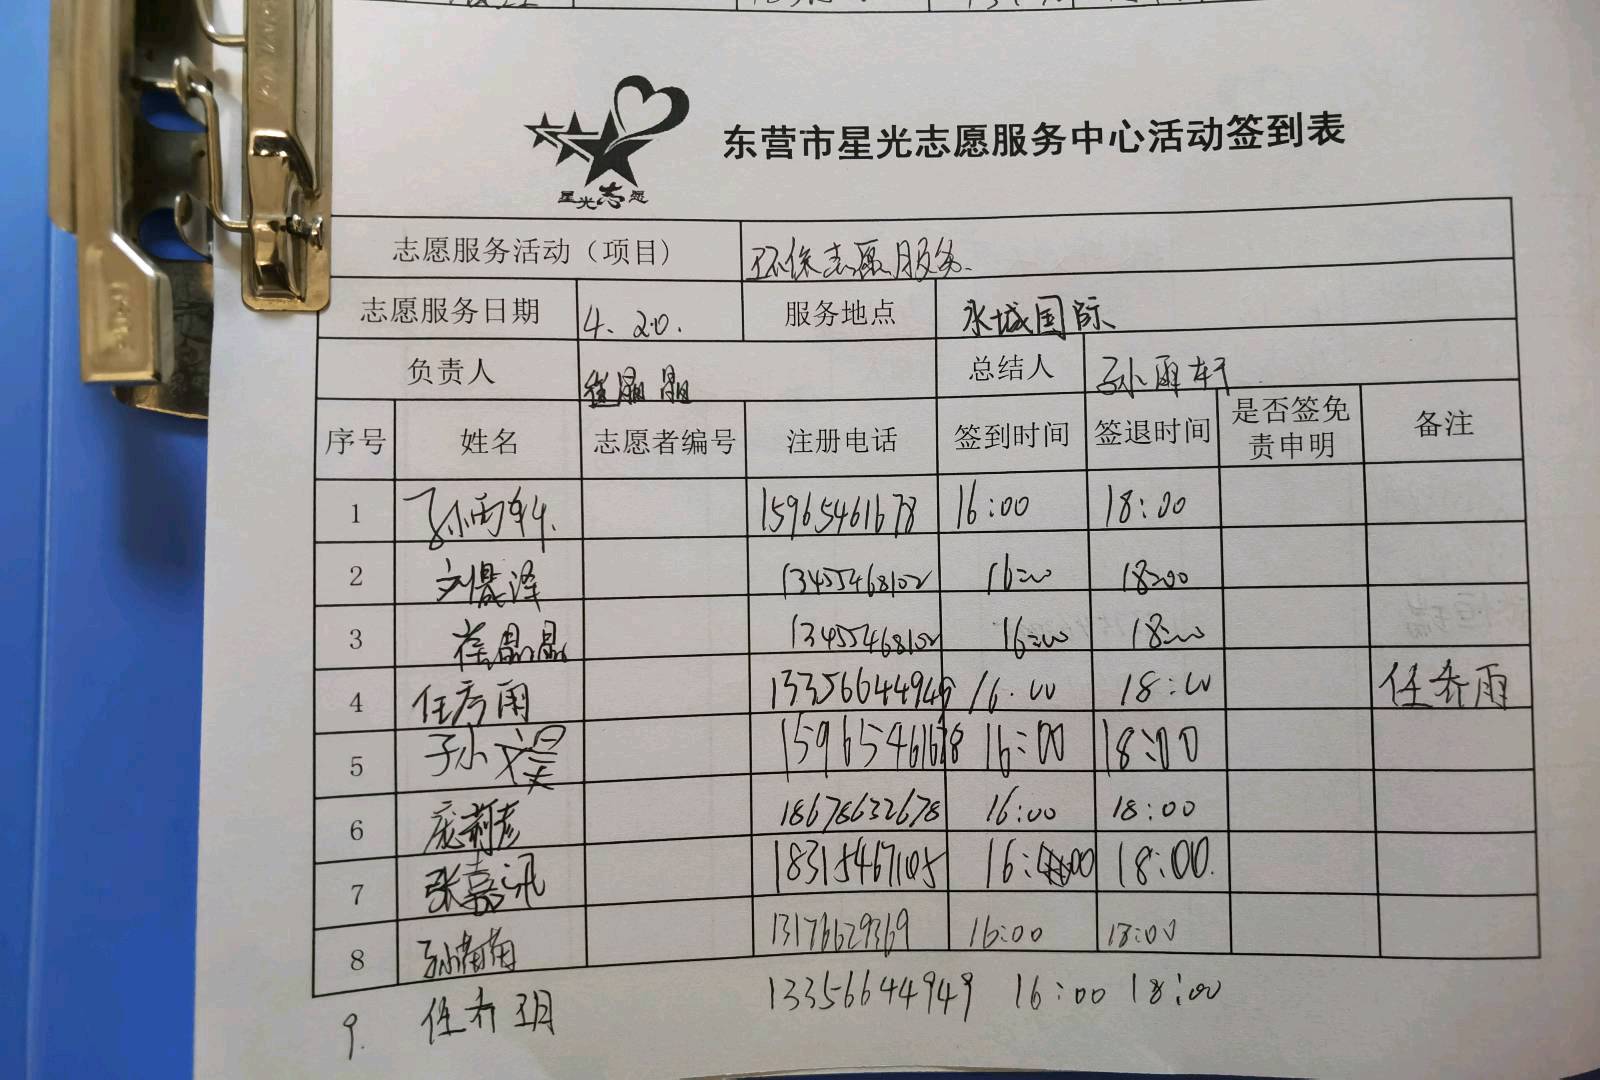 星光志愿
东营市星光志愿服务中心活动签到表
志愿服务活动（项目） 环保志愿服务.
志愿服务日期 4.20. 服务地点 永城国际
负责人 崔晶晶 总结人 孙雨轩
序号 姓名 志愿者编号 注册电话 签到时间 签退时间 是否签免责申明 备注
1 孙雨轩. 15965461678 16:00 18:00
2 刘晟泽 13455468102 16:00 18:00
3 崔晶晶 13455468102 16:00 18:00
4 任乔雨 13356644949 16.00 18:00 任乔雨
5 孙文昊 15965461678 16:00 18:00
6 庞莉彦 18678632678 16:00 18:00
7 张嘉讯 18315467105 16:00 18:00.
8 孙楠楠 13176629369 16:00 18:00
9. 任乔玥 13356644949 16:00 18:00